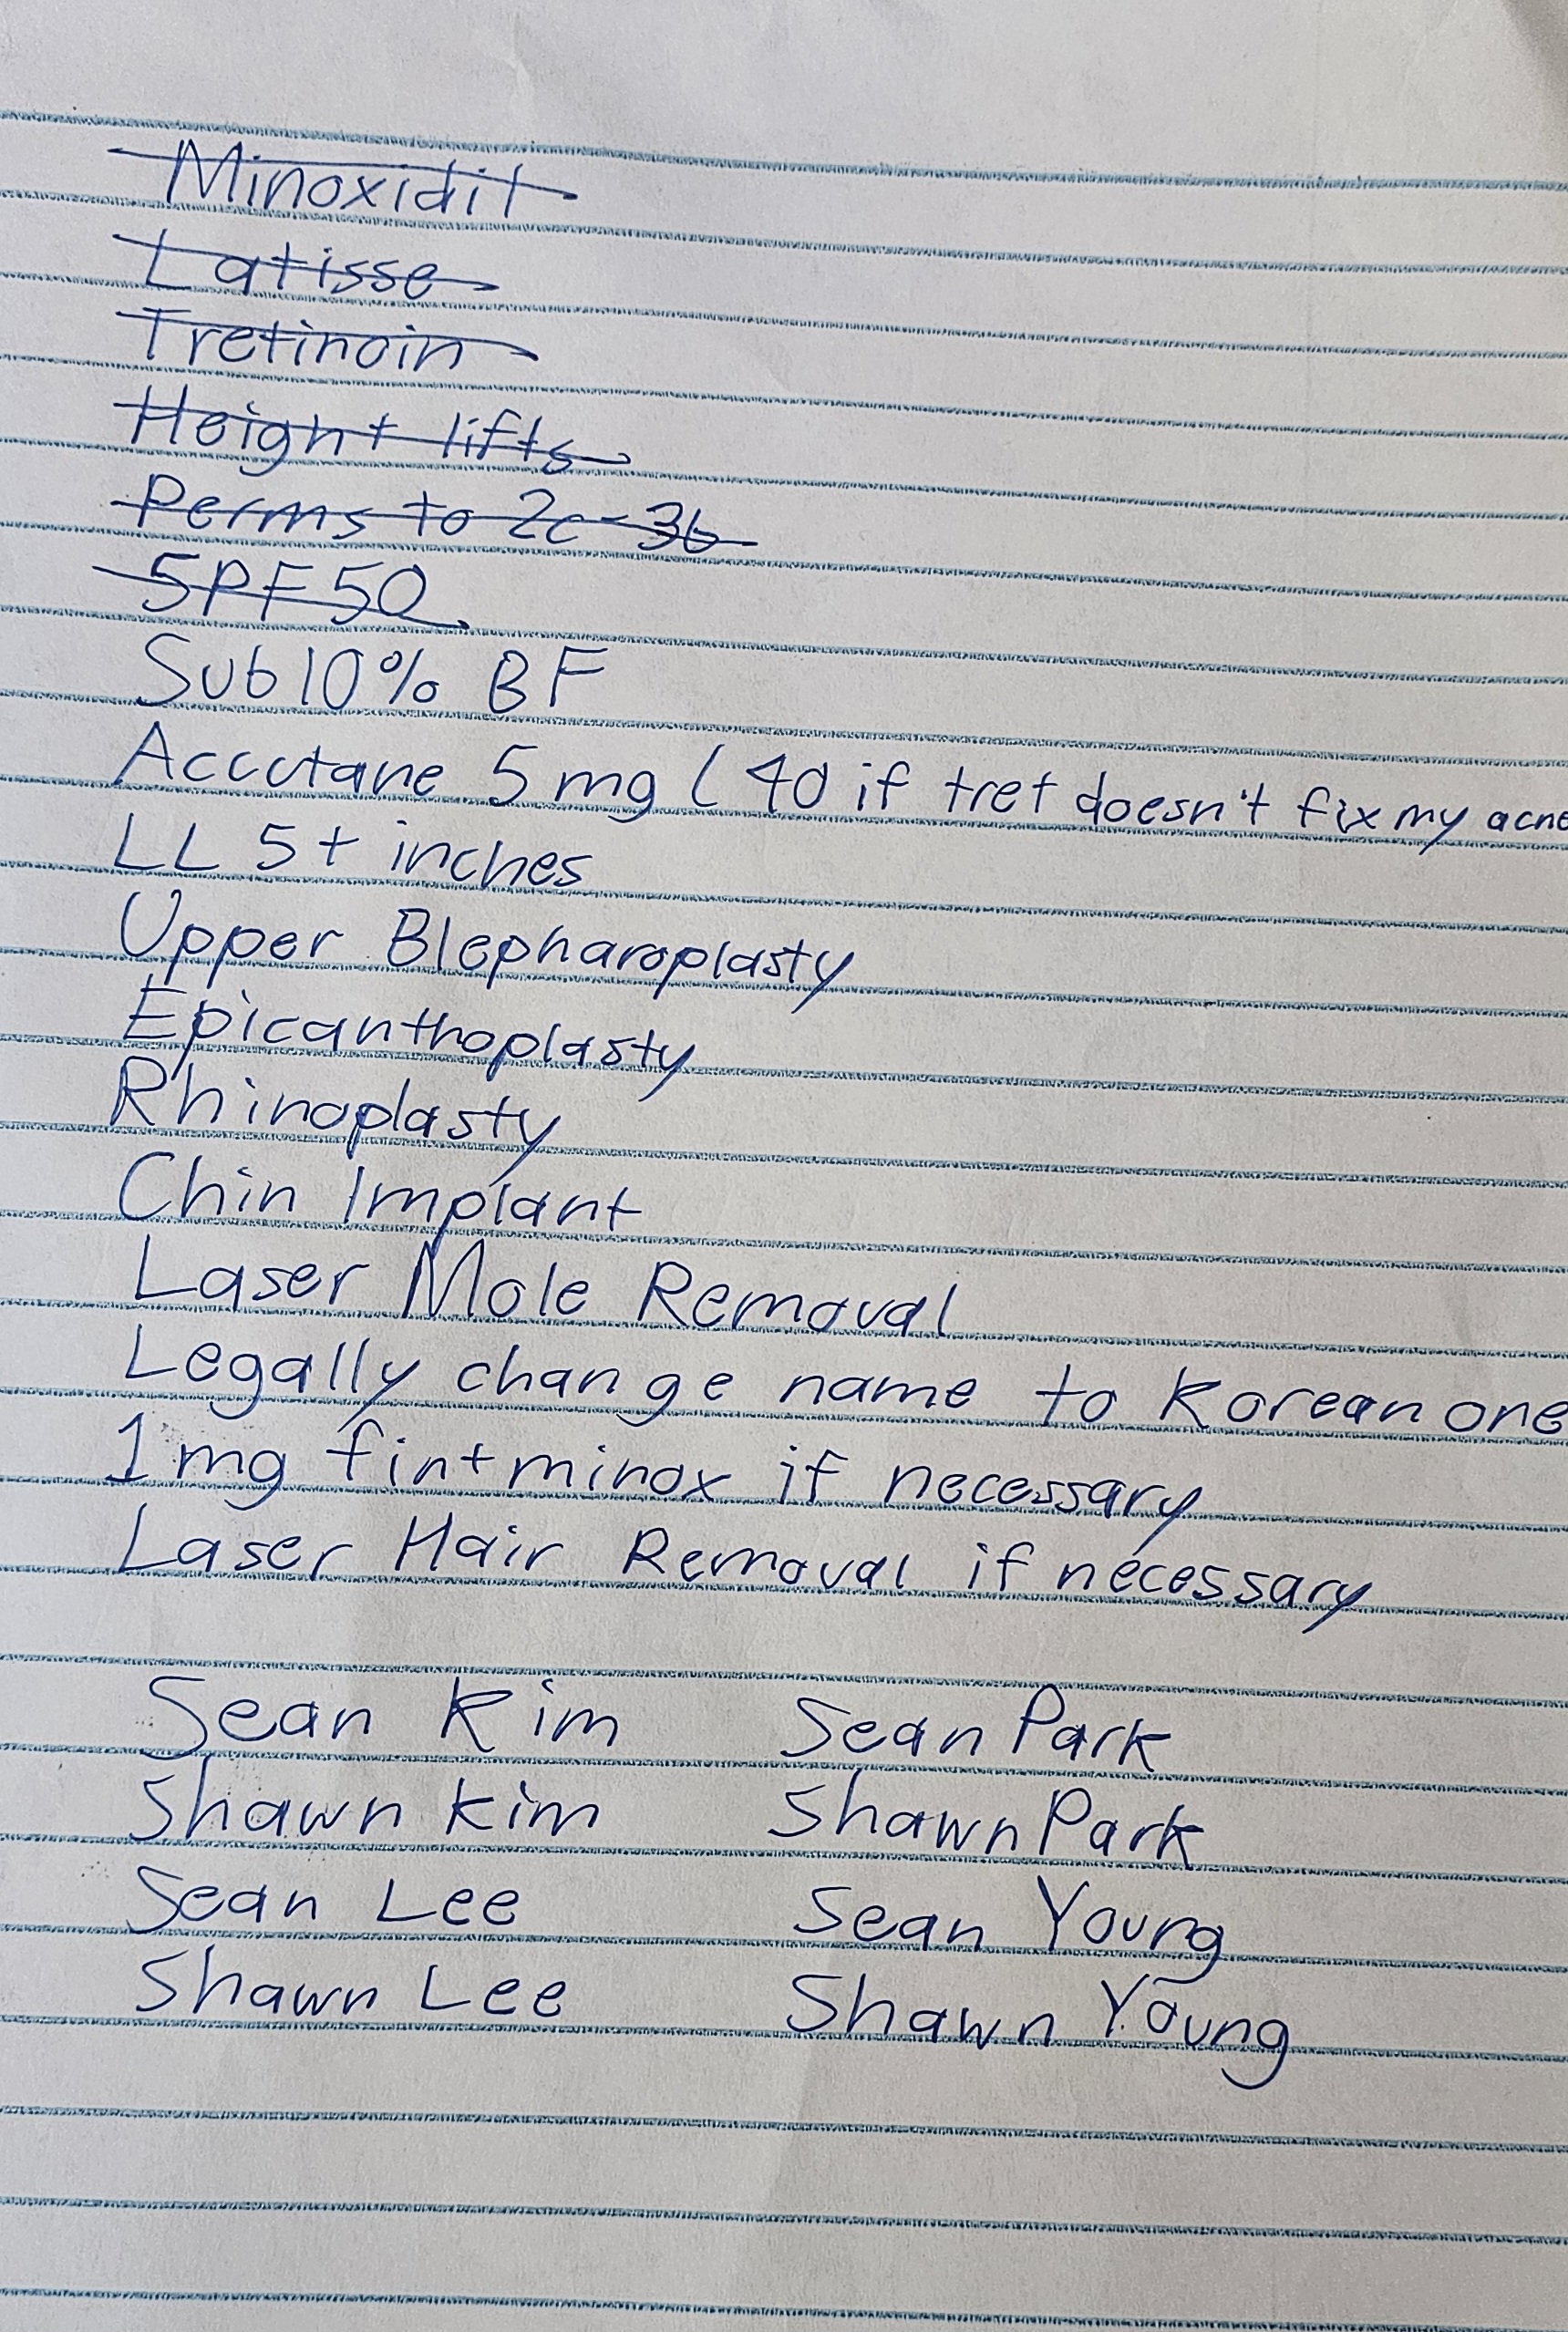 Minoxidil
Latisse
Tretinoin
Height lifts
Perms to 2c-3b
SPF 50
Sub 10% BF
Accutane 5 mg (40 if tret doesn't fix my acne
LL 5+ inches
Upper Blepharoplasty
Epicanthoplasty
Rhinoplasty
Chin Implant
Laser Mole Removal
Legally change name to Korean one
1 mg fin + minox if necessary
Laser Hair Removal if necessary
Sean Kim Sean Park
Shawn Kim Shawn Park
Sean Lee Sean Young
Shawn Lee Shawn Young